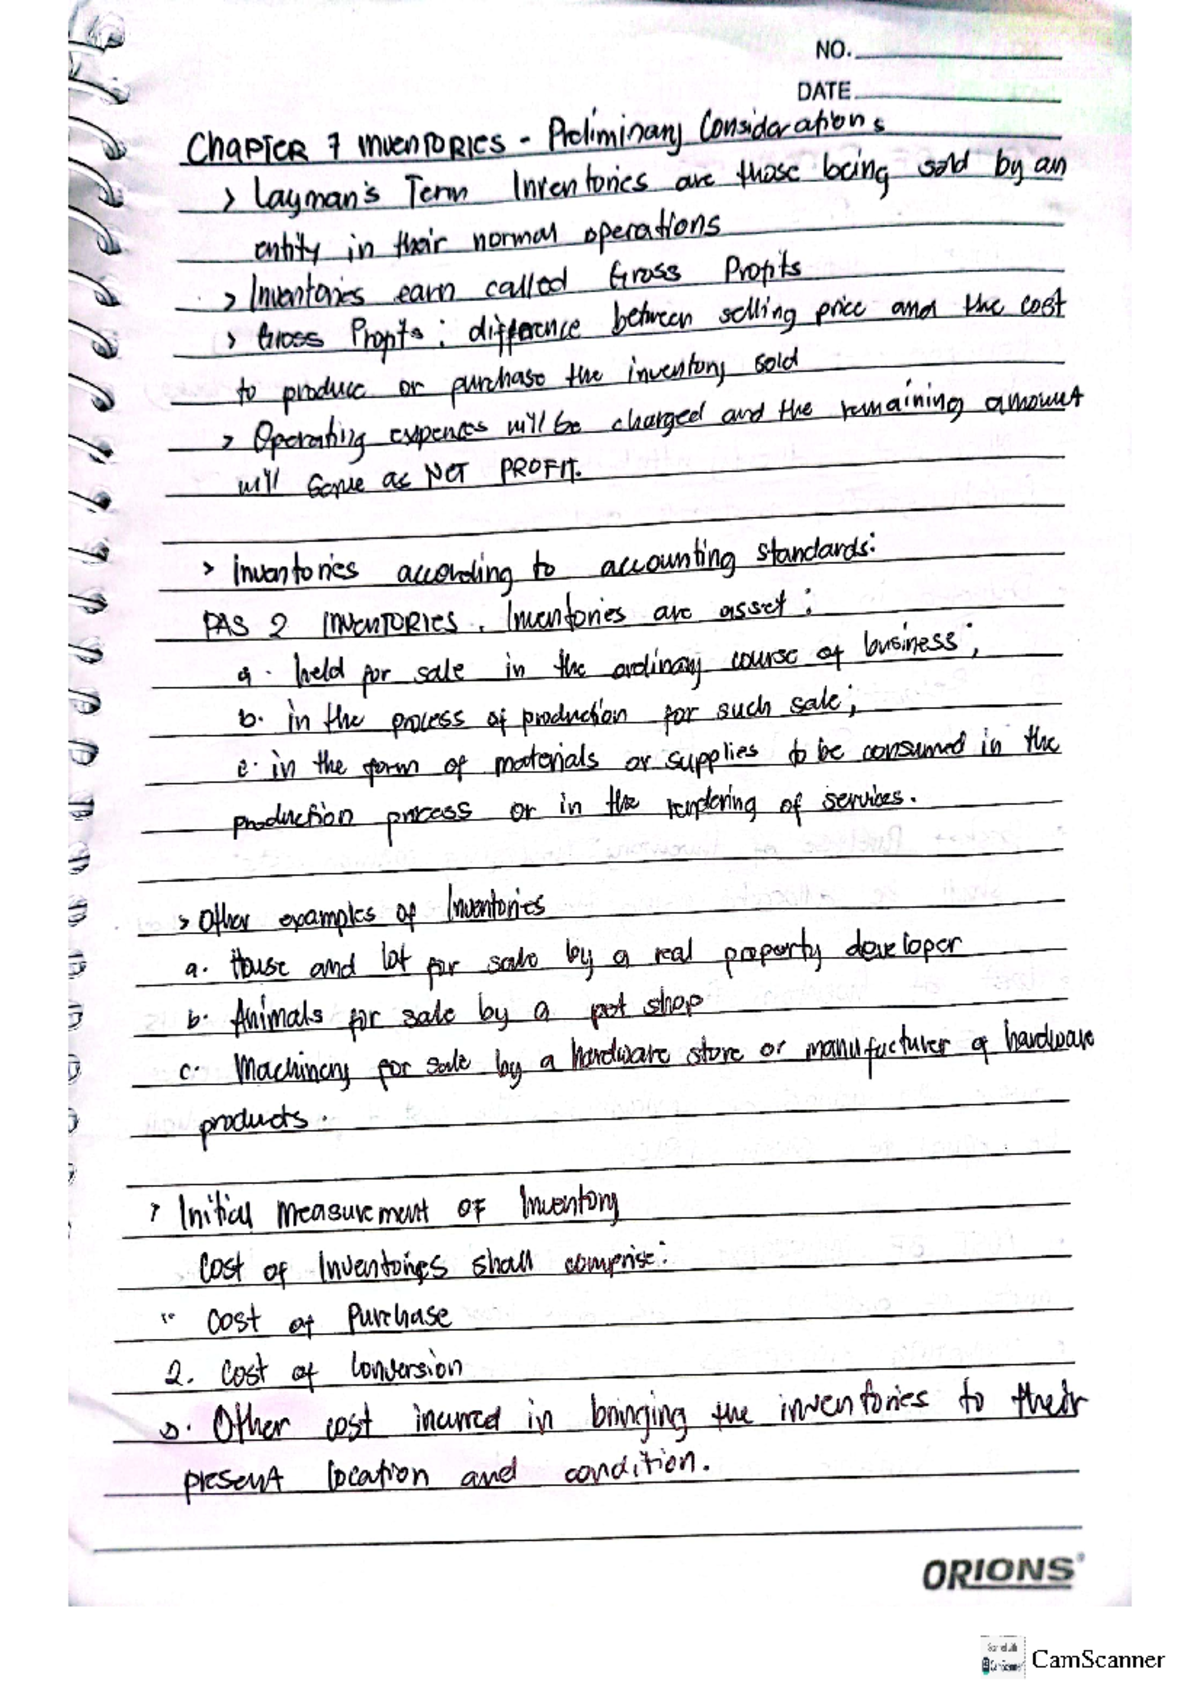 NO.
DATE
Chapter 7 Inventories - Preliminary Considerations
> Layman's Term Inventories are those being sold by an
entity in their normal operations
> Inventories earn called Gross Profits
> Gross Profits : difference between selling price and the cost
to produce or purchase the inventory sold
> Operating expences will be charged and the remaining amount
will serve as NET PROFIT.
> Inventories according to accounting standards:
PAS 2 INVENTORIES. Inventories are asset :
a. held for sale in the ordinary course of business;
b. in the process of production for such sale;
c. in the form of materials or supplies to be consumed in the
production process or in the rendering of services.
> Other examples of Inventories
a. House and lot for sale by a real property developer
b. Animals for sale by a pet shop
c. Machinery for sale by a hardware store or manufacturer of hardware
products.
> Initial measurement OF Inventory
Cost of Inventories shall comprise:
Cost of Purchase
2. Cost of Conversion
3. Other cost incurred in bringing the inventories to their
present location and condition.
ORIONS
CamScanner